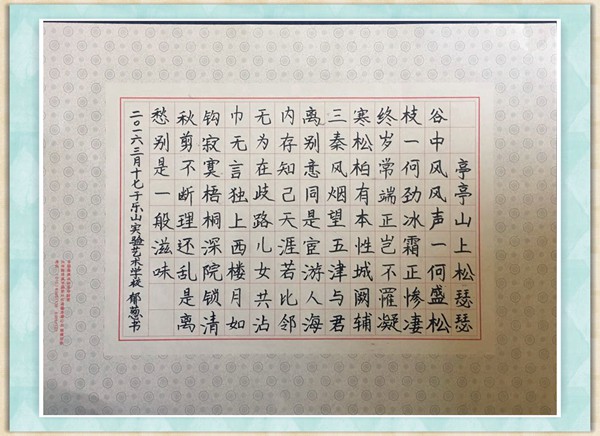 亭亭山上松瑟瑟
谷中风风声一何盛松
枝一何劲冰霜正惨凄
终岁常端正岂不罹凝
寒松柏有本性城阙辅
三秦风烟望五津与君
离别恋同是宦游人海
内存知己天涯若比邻
无为在歧路儿女共沾
巾无言独上西楼月如
钩寂寞梧桐深院锁清
秋剪不断理还乱是离
愁别是一般滋味
二〇一六三月十七于乐山实验艺术学校 郁葱书